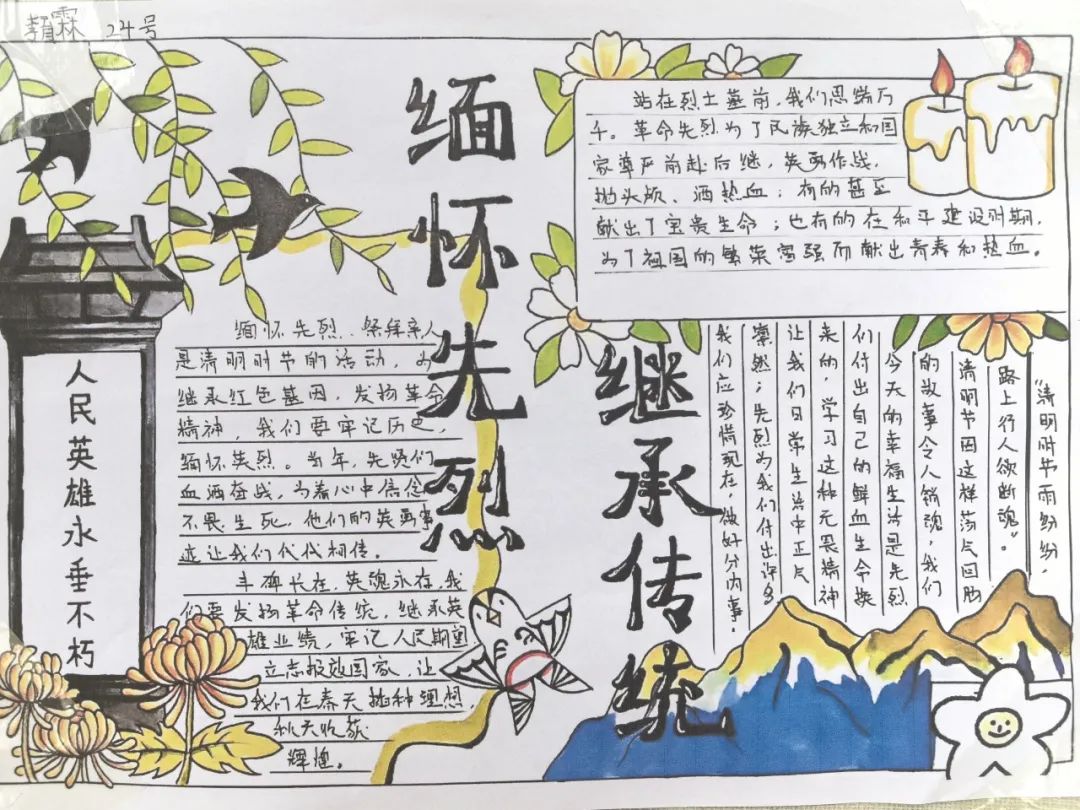 霖 24号
缅怀先烈
继承传统
人民英雄永垂不朽
站在烈士墓前，我们思绪万
千。革命先烈为了民族独立和国
家尊严前赴后继，英勇作战，
抛头颅、洒热血；有的甚至
献出了宝贵生命；也有的在和平建设时期，
为了祖国的繁荣富强而献出青春和热血。
缅怀先烈、祭拜亲人
是清明时节的活动，为
继承红色基因，发扬革命
精神，我们要牢记历史，
缅怀英烈。当年，先贤们
血洒奋战，为着心中信念
不畏生死，他们的英勇事
迹让我们代代相传。
丰碑长在，英魂永存，我
们要发扬革命传统，继承英
雄业绩，牢记人民期望
立志报效国家，让
我们在春天播种理想，
秋天收获
辉煌。
“清明时节雨纷纷，
路上行人欲断魂”。
清明节因这样荡气回肠
的故事令人销魂，我们
今天的幸福生活是先烈
们付出自己的鲜血生命换
来的，学习这种无畏精神
让我们日常生活中正气
凛然；先烈为我们付出许多
我们应珍惜现在，做好分内事。